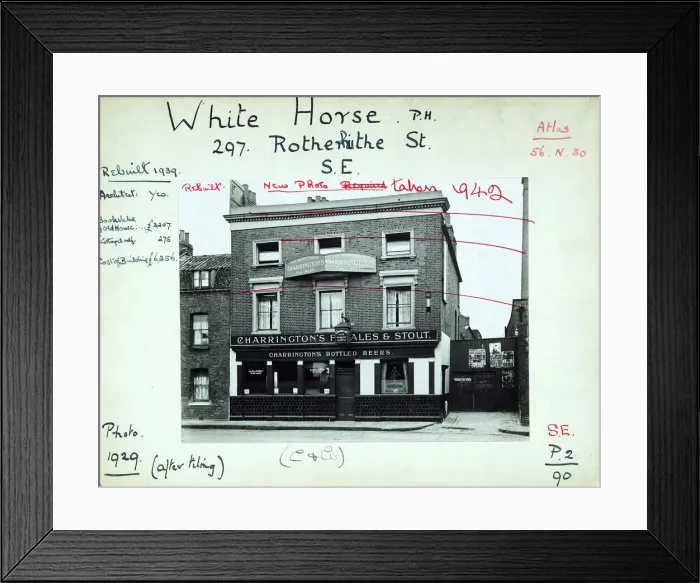 White Horse. P.H.
297. Rotherhithe St.
S.E.
Atlas
56. N. 30
Rebuilt 1939.
Architect: Yeo.
Rebuilt. New Photo Required taken 1942
Old House: ... £2207.
275
Cost of Building £6,256.
CHARRINGTON'S ALES & STOUT.
CHARRINGTON'S BOTTLED BEERS.
Photo.
1929. (after tiling)
(C & Co)
S.E.
P.2
90